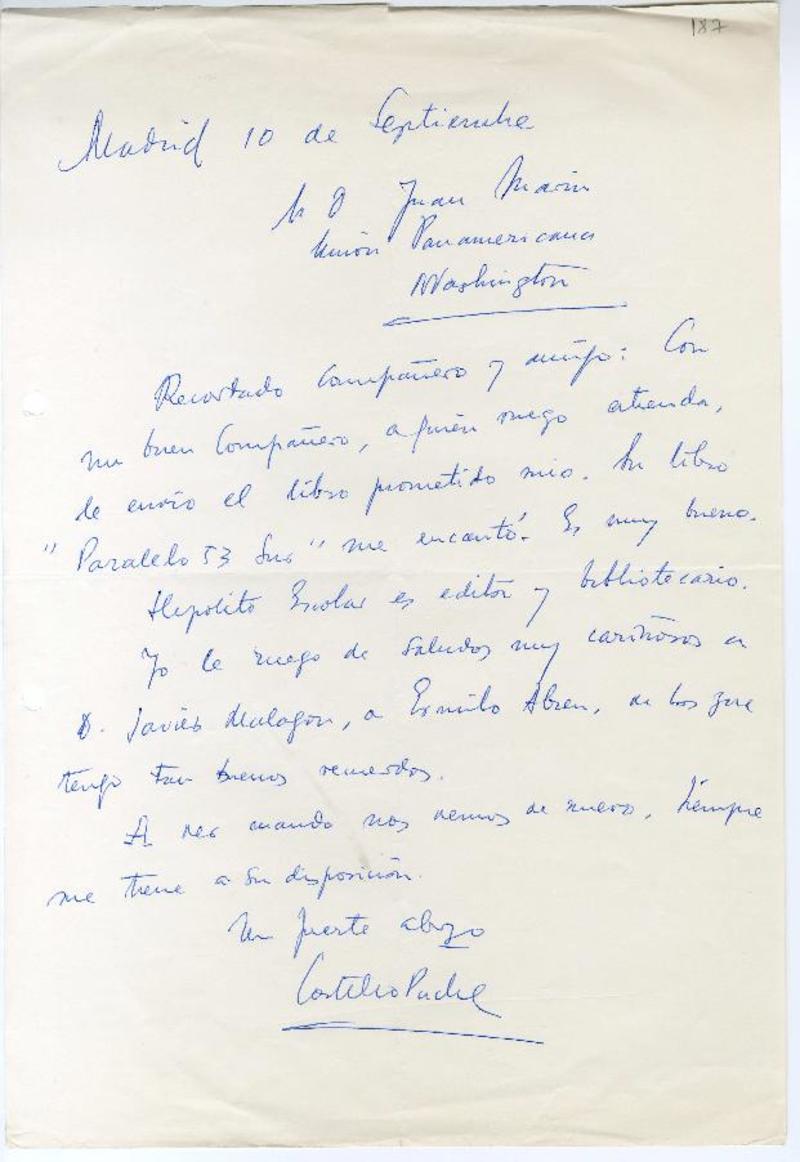 187
Madrid 10 de Septiembre
D Juan Marin
Unión Panamericana
Washington
Recordado Compañero y amigo: Con
un buen Compañero, a quien ruego atienda,
le envio el libro prometido mio. Su libro
"Paralelo 53 Sur" me encantó. Es muy bueno.
Hipólito Escolar es editor y bibliotecario.
Yo le ruego de saludos muy cariñosos a
D. Javier Malagon, a Ermilo Abreu, de los que
tengo tan buenos recuerdos.
A ver cuando nos vemos de nuevo. Siempre
me tiene a su disposición.
Un fuerte abrazo
Castillo Puche